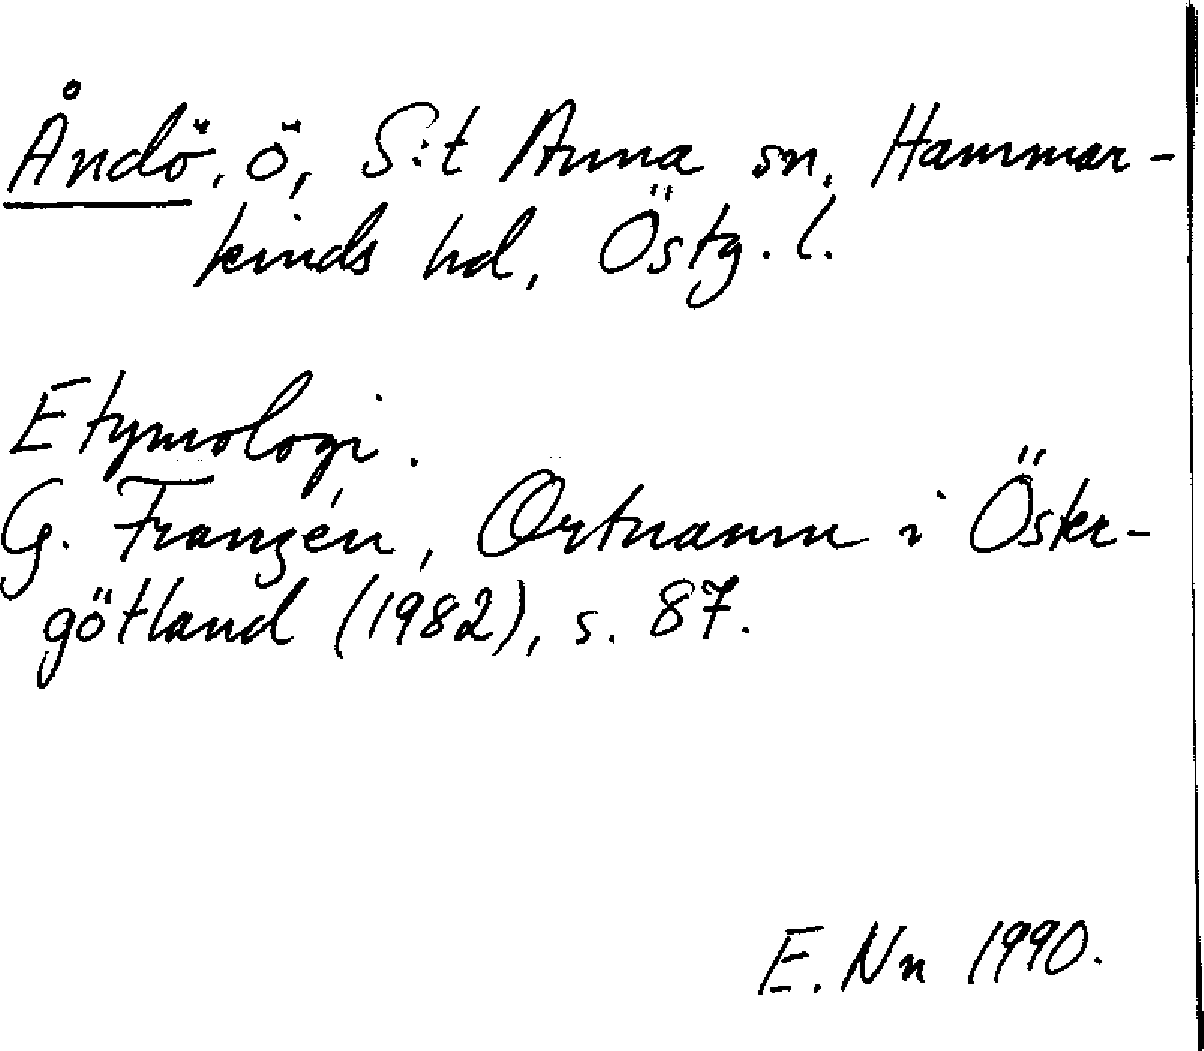 Åndö, ö, S:t Anna sn, Hammar-
kinds hd, Östg. l.
Etymologi.
G. Franzén, Ortnamn i Öster-
götland (1982), s. 87.
E. Nn 1990.